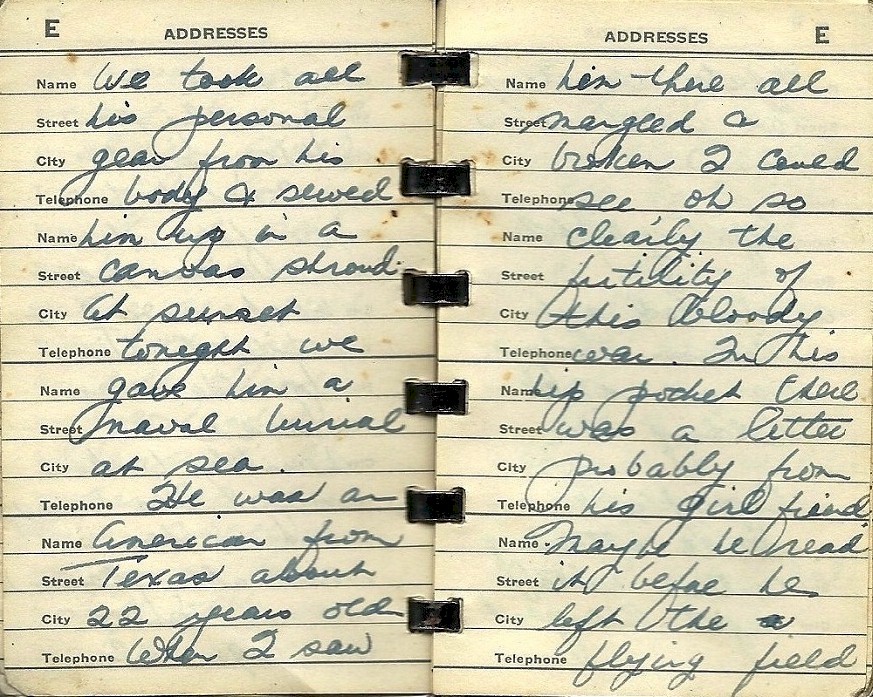 E ADDRESSES
Name We took all
Street his personal
City gear from his
Telephone body & sewed
Name him up in a
Street canvas shroud
City At sunset
Telephone tonight we
Name gave him a
Street naval burial
City at sea.
Telephone He was an
Name American from
Street Texas about
City 22 years old
Telephone When I saw
ADDRESSES E
Name him there all
Street mangled &
City broken I could
Telephone see oh so
Name clearly the
Street futility of
City this bloody
Telephone war. In his
Name hip pocket there
Street was a letter
City probably from
Telephone his girl friend
Name Maybe he read
Street it before he
City left the
Telephone flying field